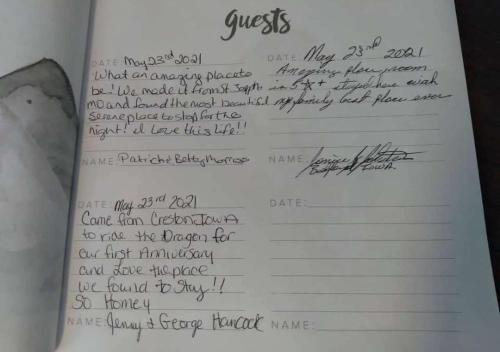 guests
DATE: May 23rd 2021
What an amazing place to
be! We made it from St Joseph
MO and found the most beautiful
serene place to stop for the
night! I love this life!!
NAME: Patrick & Betty
DATE: May 23rd 2021
Amazing place room
is 5 + stayed here with
my family best place ever
NAME:
IOWA.
DATE: May 23rd 2021
Came from Creston, IOWA
to ride the Dragon for
our first Anniversary
and Love the place
we found to stay!!
SO Homey
NAME: Jenny & George Hancock
DATE:
NAME: